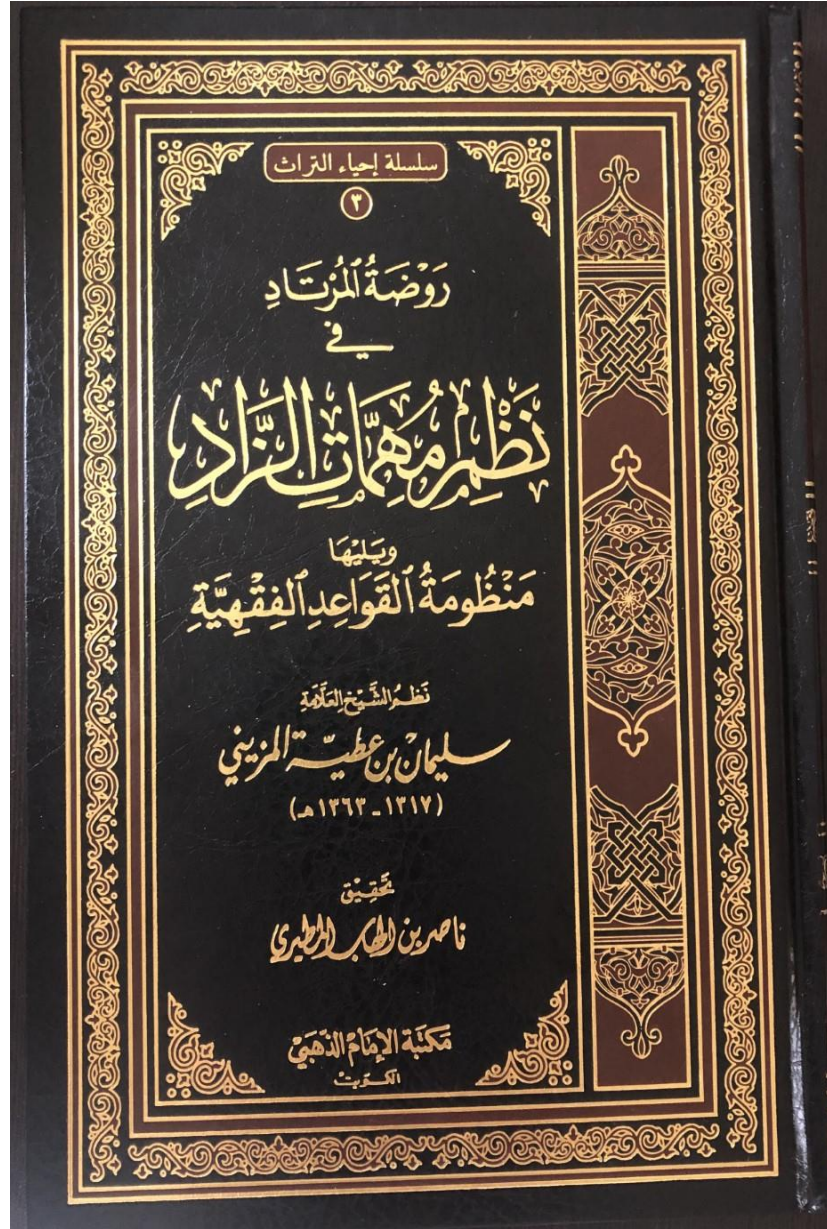 سلسلة إحياء التراث
٣
رَوْضَةُ ٱلْمُرْتَادِ
في
نَظْمِ مُهِمَّاتِ الزَّادِ
وَيَلِيْهَا
مَنْظُومَةُ ٱلْقَوَاعِدِ ٱلْفِقْهِيَّةِ
نَظْمُ الشَّيْخِ العَلَّامَةِ
سليمان بن عطيّة المزيني
(١٣١٧ - ١٣٦٣هـ)
تحقيق
ناصر بن المطيري
مَكتَبَة الإِمَام الذّهَبِيّ
الكويت